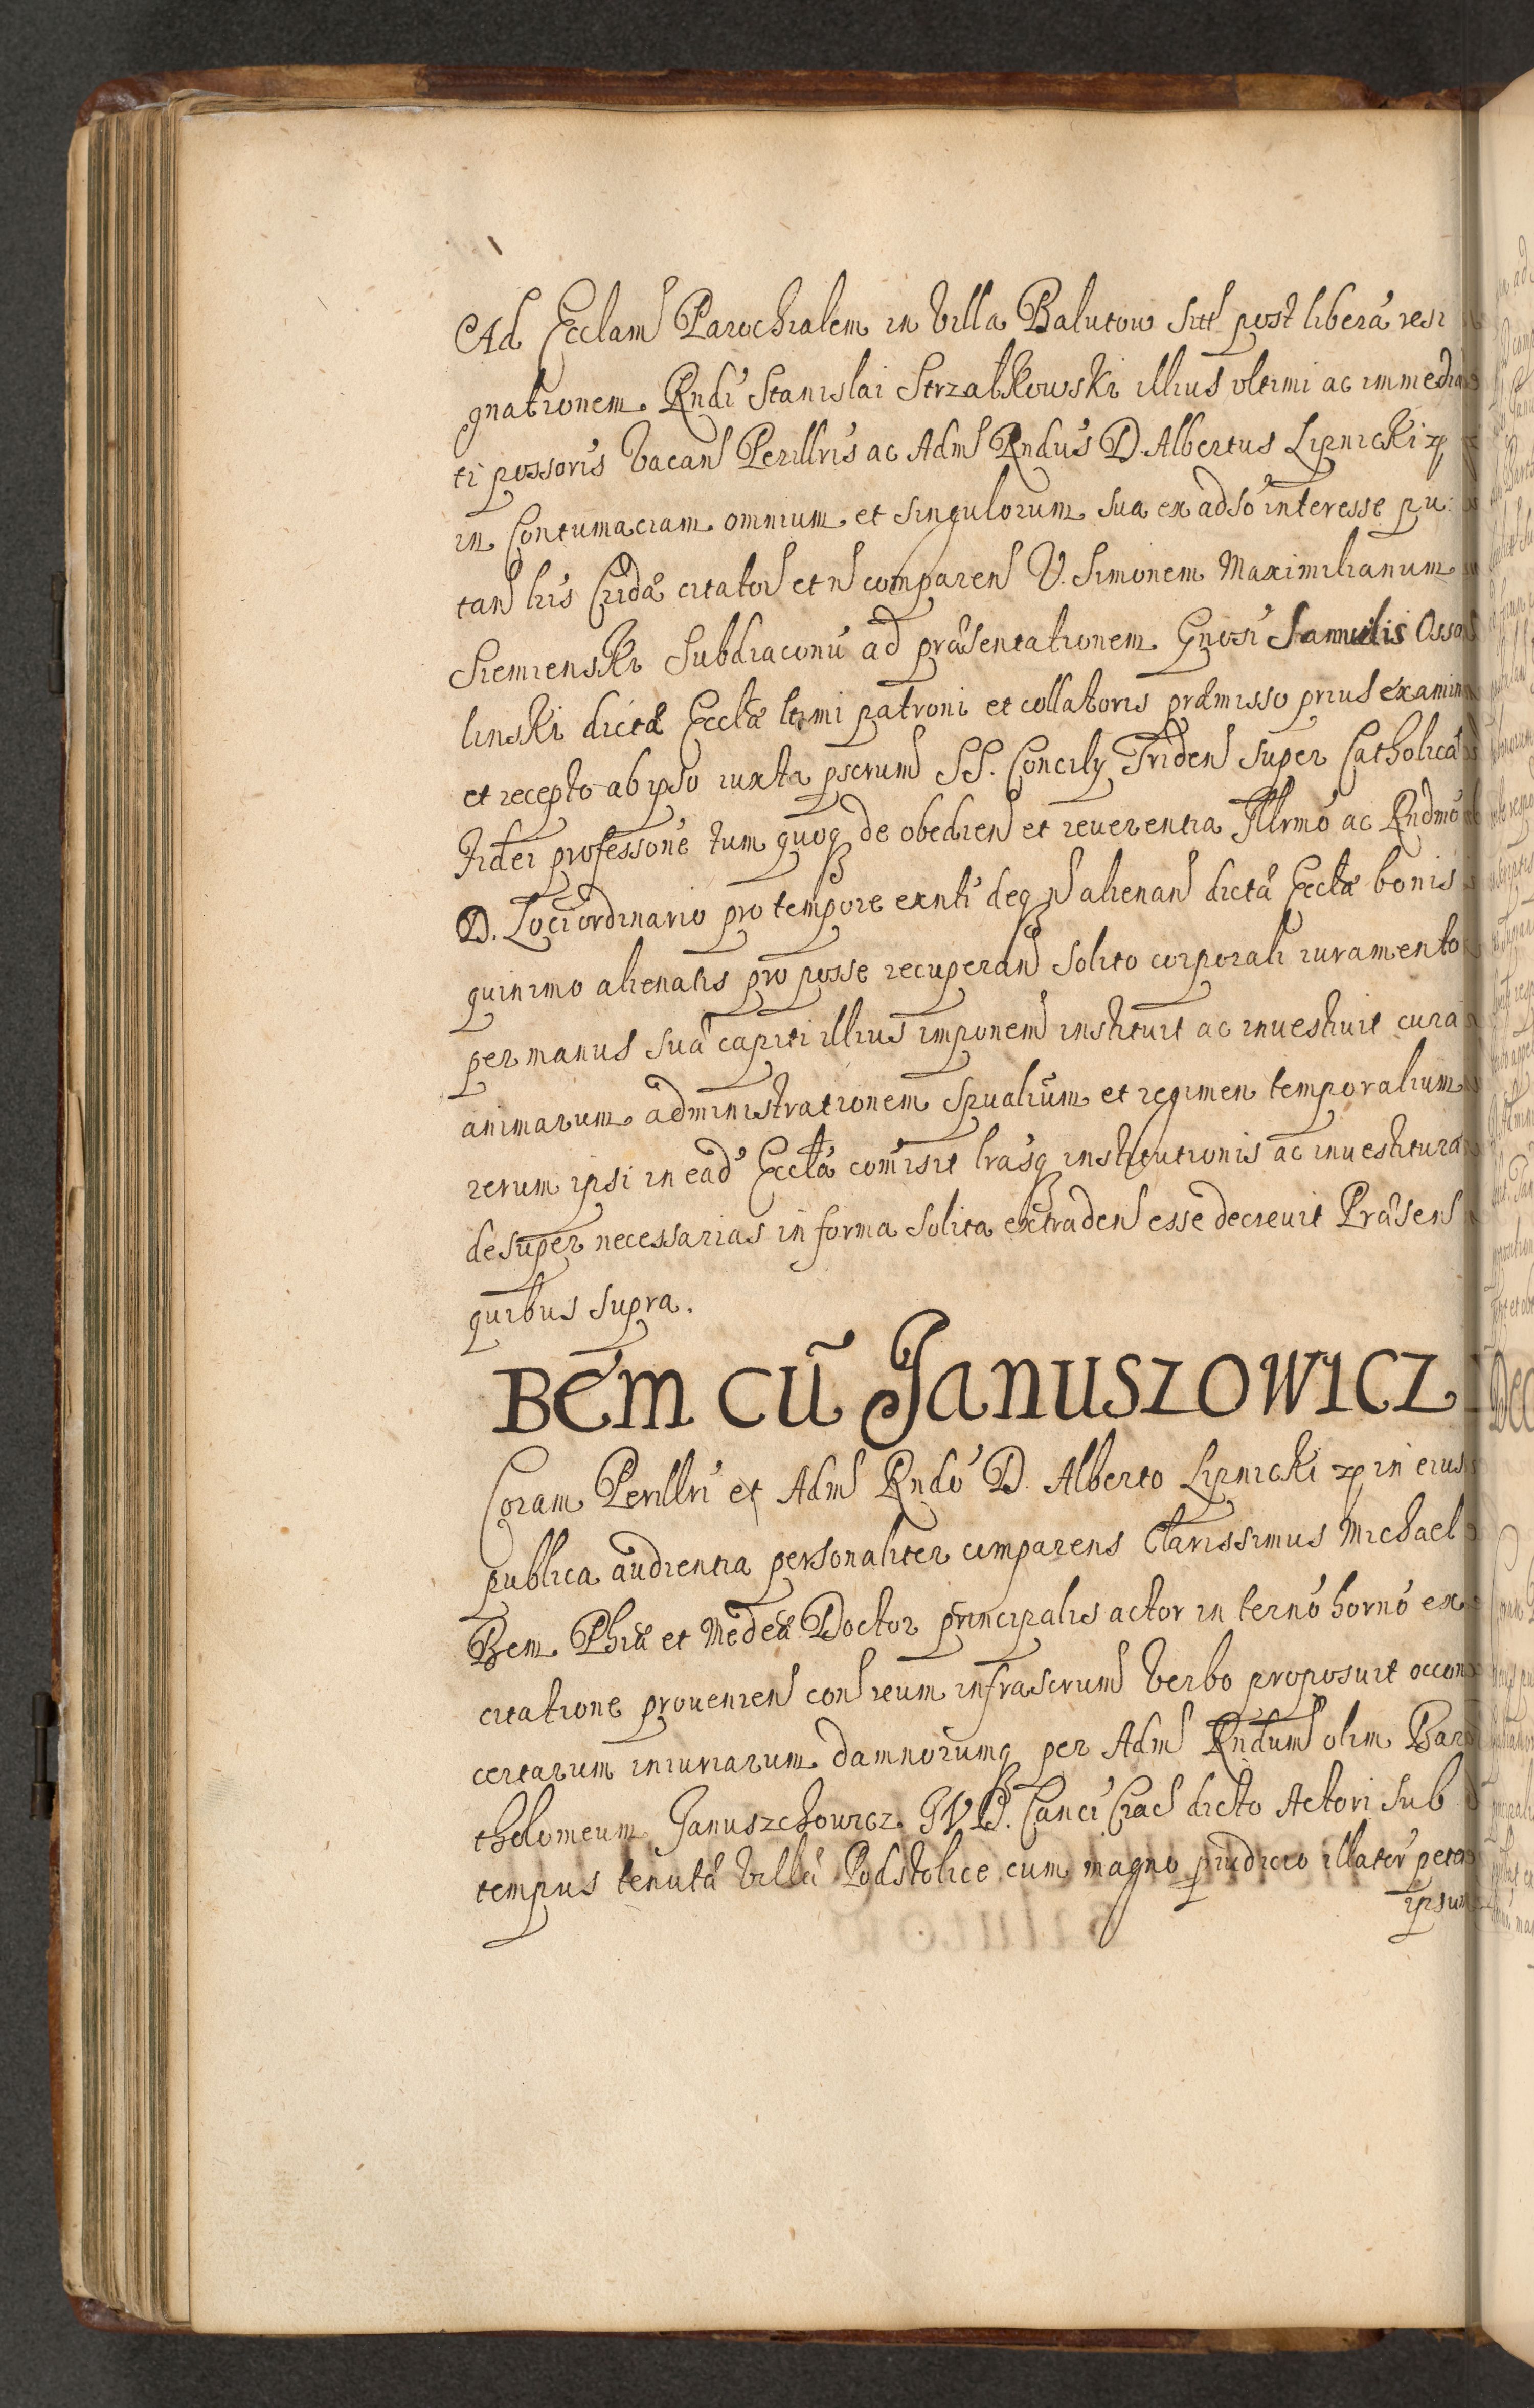 Ad Ecclam Parochialem in Villa Balutow sitt post liberá resi
gnationem Rndi Stanislai Strzabkowski illius vltimi ac immedia
ti possoris Vacan Perillris ac Adm Rndus D. Albertus Lipnicki
in Contumaciam omnium et singulorum sua ex adso interesse pu
tan his Cridã citator et n comparen V. Simonem Maximilianum
Siemienski Subdiaconú ad præsentationem Gnosi Samuelis Osso
linski dictæ Ecclæ ltmi patroni et collatoris præmisso prius examin
et recepto ab ipso iuxta pscrum SS. Concily Triden super Catholicá
Fidei professone tum quoq de obedien et reuerentia Illrmo ac Rndmo
D. Loci ordinario pro tempore exnti deq n alienan dictæ Ecclæ bonis
quinimo alienatis pro posse recuperan solito corporali iuramento
per manus suæ capiti illius imponem instituit ac inuestiuit cura
animarum administrationem spualium et regimen temporalium
rerum ipsi in ead Ecclá comisit lrasq institutionis ac inuestitura
desuper necessarias in forma solita extraden esse decreuit Præsen
quibus supra.
Bem cũ Januszowicz
Coram Perillri et Adm Rndo D. Alberto Lipnicki in eius
publica audientia personaliter comparens Clarissimus Michael
Bem Phiæ et Medcæ Doctor principalis actor in termo horno ex
citatione prouenien con reum infrascrum verbo proposuit occon
certarum iniuriarum damnorumq per Adm Rndum olim Bar
tholomeum Januszchowicz JVD. Canci Crac dicto Actori sub
tempus tenutæ villæ Podstolice cum magno piudicio illator peten
ipsum